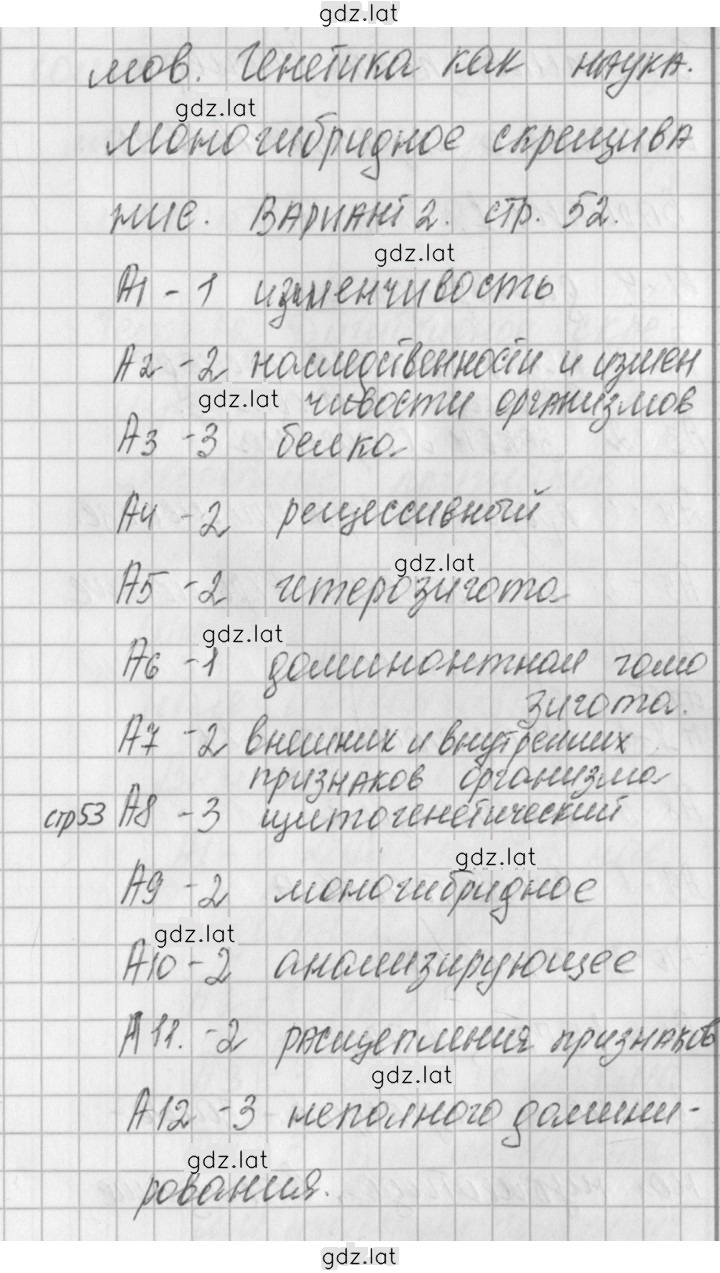 gdz.lat
мов. Генетика как наука.
gdz.lat
Моногибридное скрещива
ние. Вариант 2. стр. 52.
gdz.lat
А1 - 1 изменчивость
А2 - 2 наследственности и измен
gdz.lat чивости организмов
А3 - 3 белка
А4 - 2 рецессивный
gdz.lat
А5 - 2 гетерозигота
gdz.lat
А6 - 1 доминантная гомо
зигота.
А7 - 2 внешних и внутренних
признаков организма
стр53 А8 - 3 цитогенетический
gdz.lat
А9 - 2 моногибридное
gdz.lat
А10 - 2 анализирующее
А11. - 2 расщепления признаков
gdz.lat
А12 - 3 неполного домини-
gdz.lat
рования.
gdz.lat